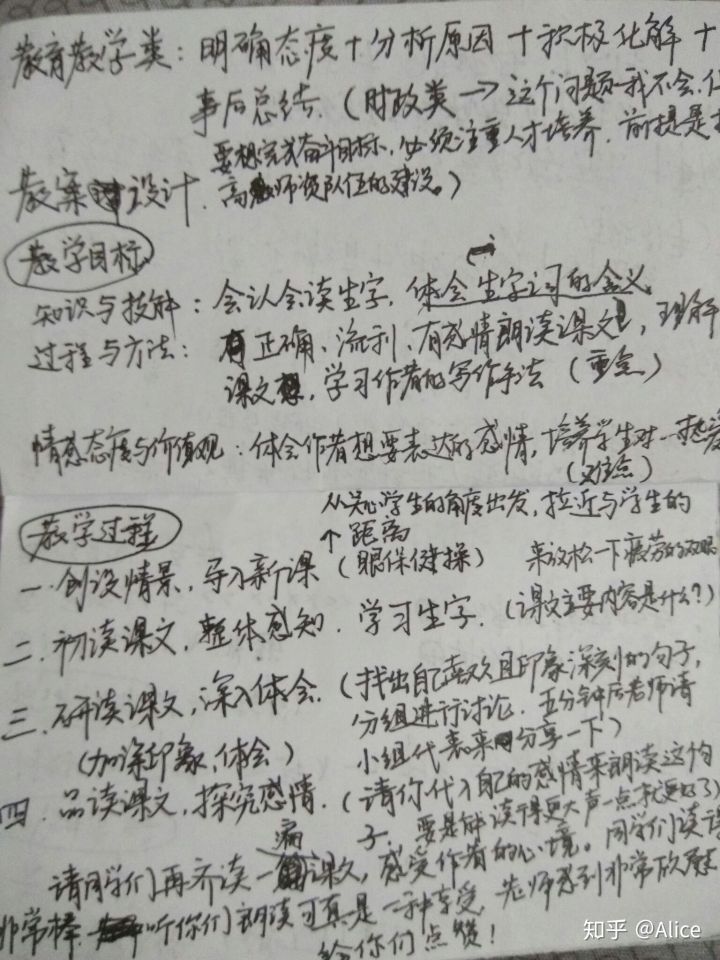 教育教学类：明确态度＋分析原因＋积极化解＋
事后总结.（时政类→这个问题我不会,
要想完成奋斗目标,必须注重人才培养.前提是
教案设计. 高教师资队伍的建设。）
教学目标
知识与技能：会认会读生字.体会生字词的含义
过程与方法：正确、流利、有感情朗读课文,理解
课文,学习作者的写作手法（重点）
情感态度与价值观：体会作者想要表达的感情,培养学生对一热爱
（难点）
从关心学生的角度出发,拉近与学生的
教学过程 ↑距离
一.创设情景,导入新课（眼保健操） 来放松一下疲劳的双眼
二.初读课文,整体感知.学习生字.（课文主要内容是什么?）
三.研读课文,深入体会.（找出自己喜欢且印象深刻的句子,
分组进行讨论.五分钟后老师请
（加深印象、体会） 小组代表来分享一下）
四.品读课文,探究感情.（请你代入自己的感情来朗读这個
子,要是能读得更大声一点就更好了）
请同学们再齐读一遍课文,感受作者的心境。同学们读得
非常棒.听你们朗读可真是一种享受,老师感到非常欣慰
给你们点赞!
知乎 @Alice